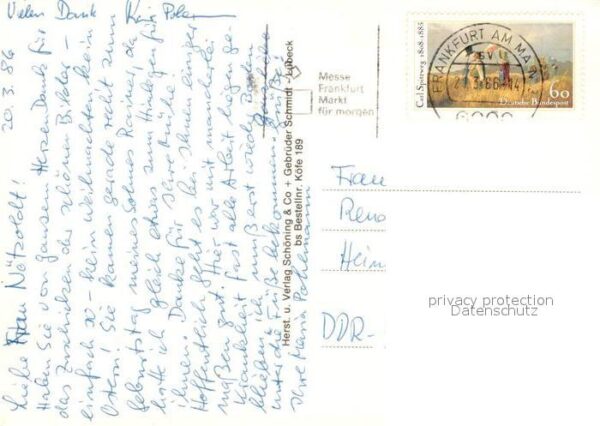 Vielen Dank
20.3.86
Liebe Frau Nötzoldt!
Haben Sie von ganzem Herzen Dank für
das Zuschicken der schönen Bilder –
einfach so – kein Weihnachten, kein
Ostern! Sie kamen gerade recht zum
Geburtstag meines Sohnes Rainer, da
hatte ich gleich etwas zum Hinlegen für
ihnen. Danke für Ihre Mühe!
Hoffentlich geht es bei Ihnen einiger-
maßen gut. Hier war mit mancherlei
Krankheit fast alle Arbeit liegen ge-
blieben, ich muß erst wieder Boden
unter die Füße bekommen.
Ihre Maria Pohlemann
Herst. u. Verlag Schöning & Co + Gebrüder Schmidt - Lübeck
bs Bestellnr. Köfe 189
Messe
Frankfurt
Markt
für morgen
FRANKFURT AM MAIN
Carl Spitzweg 1808-1885
60
Deutsche Bundespost
Frau
Reno
Hein
DDR-
privacy protection
Datenschutz